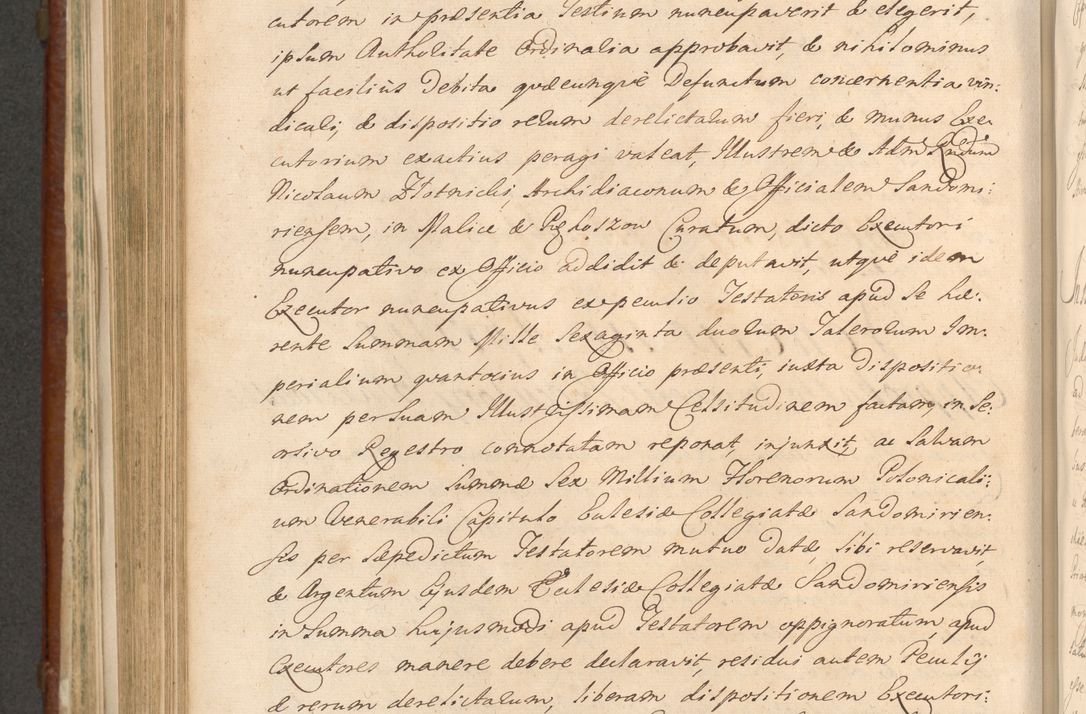 cutorem in præsentia Testium nuncupaverit & elegerit,
ipsum Authoritate Ordinaria approbavit, & nihilominus
ut facilius Debita quæcunque Defunctum concernentia vin:
dicari, & dispositio rerum derelictarum fieri, & munus Exe:
cutorium exactius peragi valeat, Illustrem & Adm Rndum
Nicolaum Złotnicki, Archidiaconum & Officialem Sandomi:
riensem, in Malice & Curatum, dicto Executori
nuncupativo ex Officio addidit & deputavit, utque idem
Executor nuncupativus ex peculio Testatoris apud se hæ:
rente Summam Mille Sexaginta duorum Talerorum Im:
perialium quantocius in Officio præsenti, iuxta Dispositio
nem per Suam Illustrissimam Celsitudinem factam, in Se:
orsivo Regestro connotatam reponat, injunxit, ac Salvam
Ordinationem Summæ Sex Millium Florenorum Polonicali:
um Venerabili Capitulo Eclesiæ Collegiatæ Sandomirien:
sis per Sæpedictum Testatorem mutuo datæ, Sibi reservavit,
& Argentum Ejusdem Eclesiæ Collegiatæ Sandomiriensis
in Summa hujusmodi apud Testatorem oppignoratum, apud
Executores manere debere declaravit, residui autem Peculij
& rerum derelictarum, liberam dispositionem Executori: